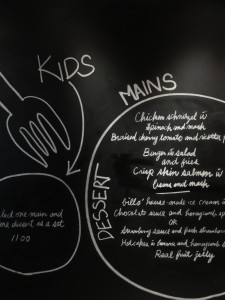 KIDS
MAINS
Chicken schnitzel w
spinach and mash
Braised cherry tomato and ricotta
Burger w salad
and fries
Crisp skin salmon w
beans and mash
DESSERT
bills' house-made ice cream
Chocolate sauce and honeycomb
OR
strawberry sauce and fresh
Hotcakes w banana and honeycomb
Real fruit jelly
one main and
one dessert as a set
1100